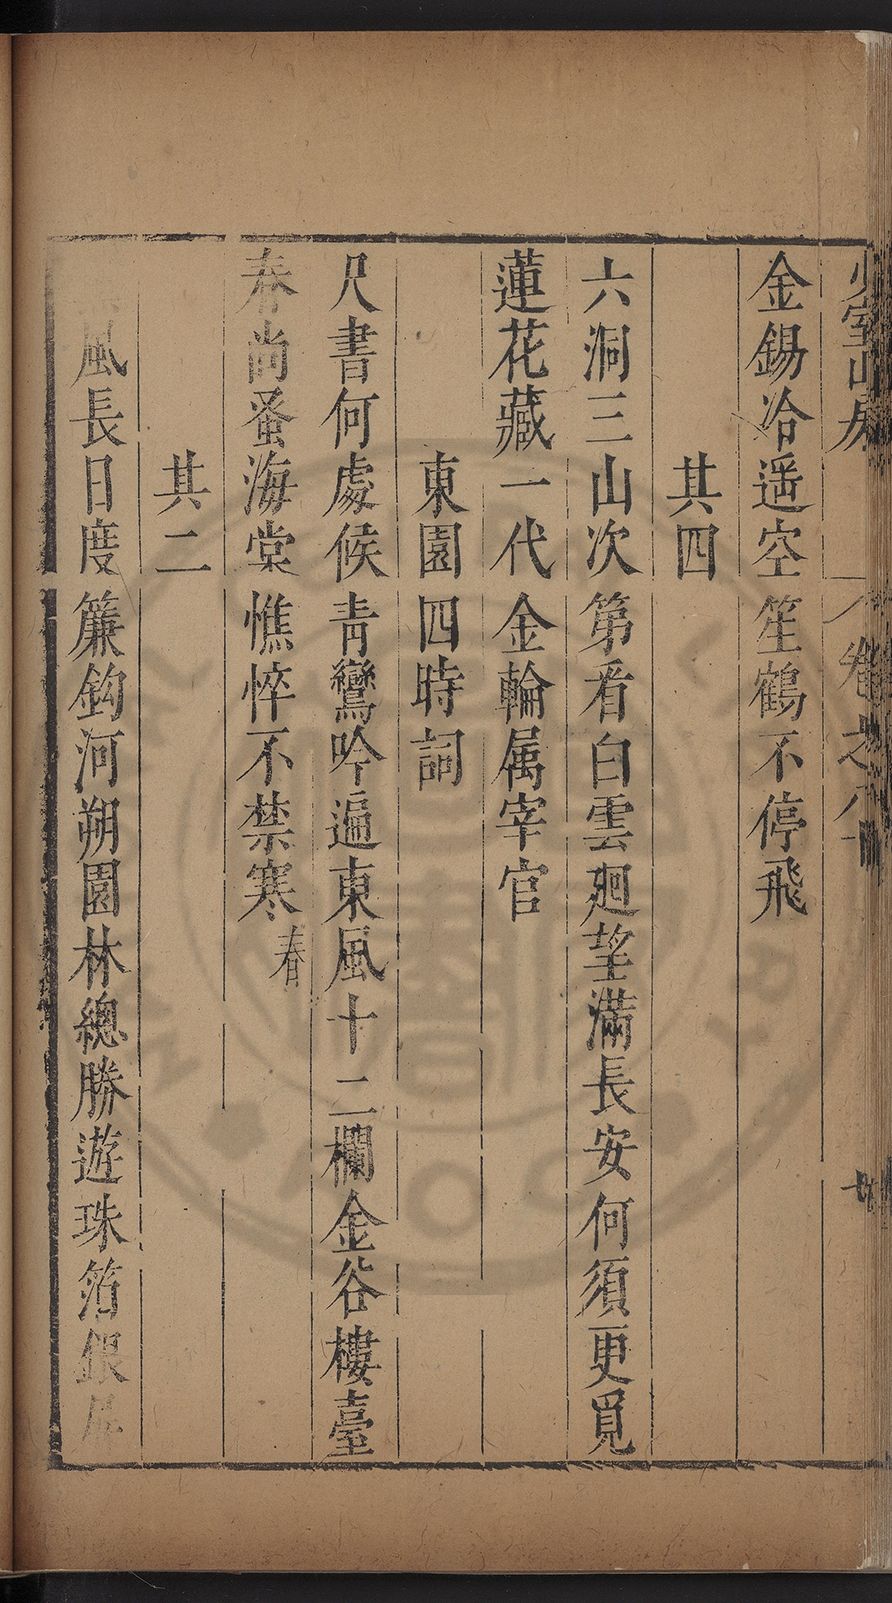 少室山房 卷之八十
金錫冷遥空笙鶴不停飛
其四
六洞三山次第看白雲廻望滿長安何須更覓
蓮花藏一代金輪属宰官
東園四時詞
尺書何處候青鸞吟遍東風十二欄金谷樓臺
春尚蚤海棠憔悴不禁寒春
其二
風長日度簾鈎河朔園林總勝遊珠箔銀屏